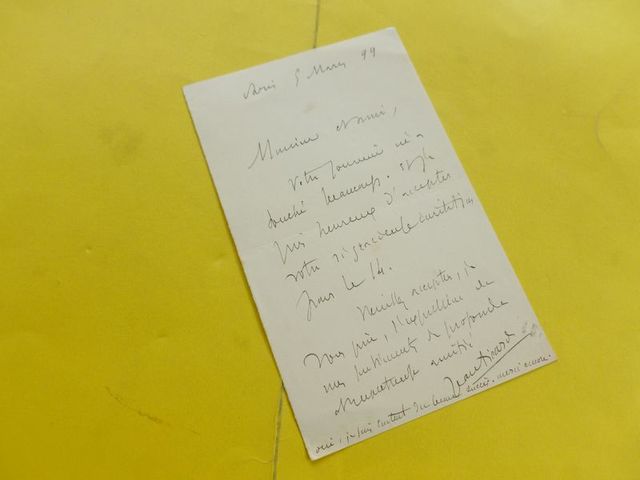 Paris 5 Mars 99
Monsieur et ami,
Votre souvenir m'a
touché beaucoup. et je
suis heureux d'accepter
votre si gracieuse invitation
pour le 14.
Veuillez accepter, je
vous prie, l'expression de
mes sentiments de profonde
et respectueuse amitié
Jean
oui, je suis content du beau succès. merci encore.